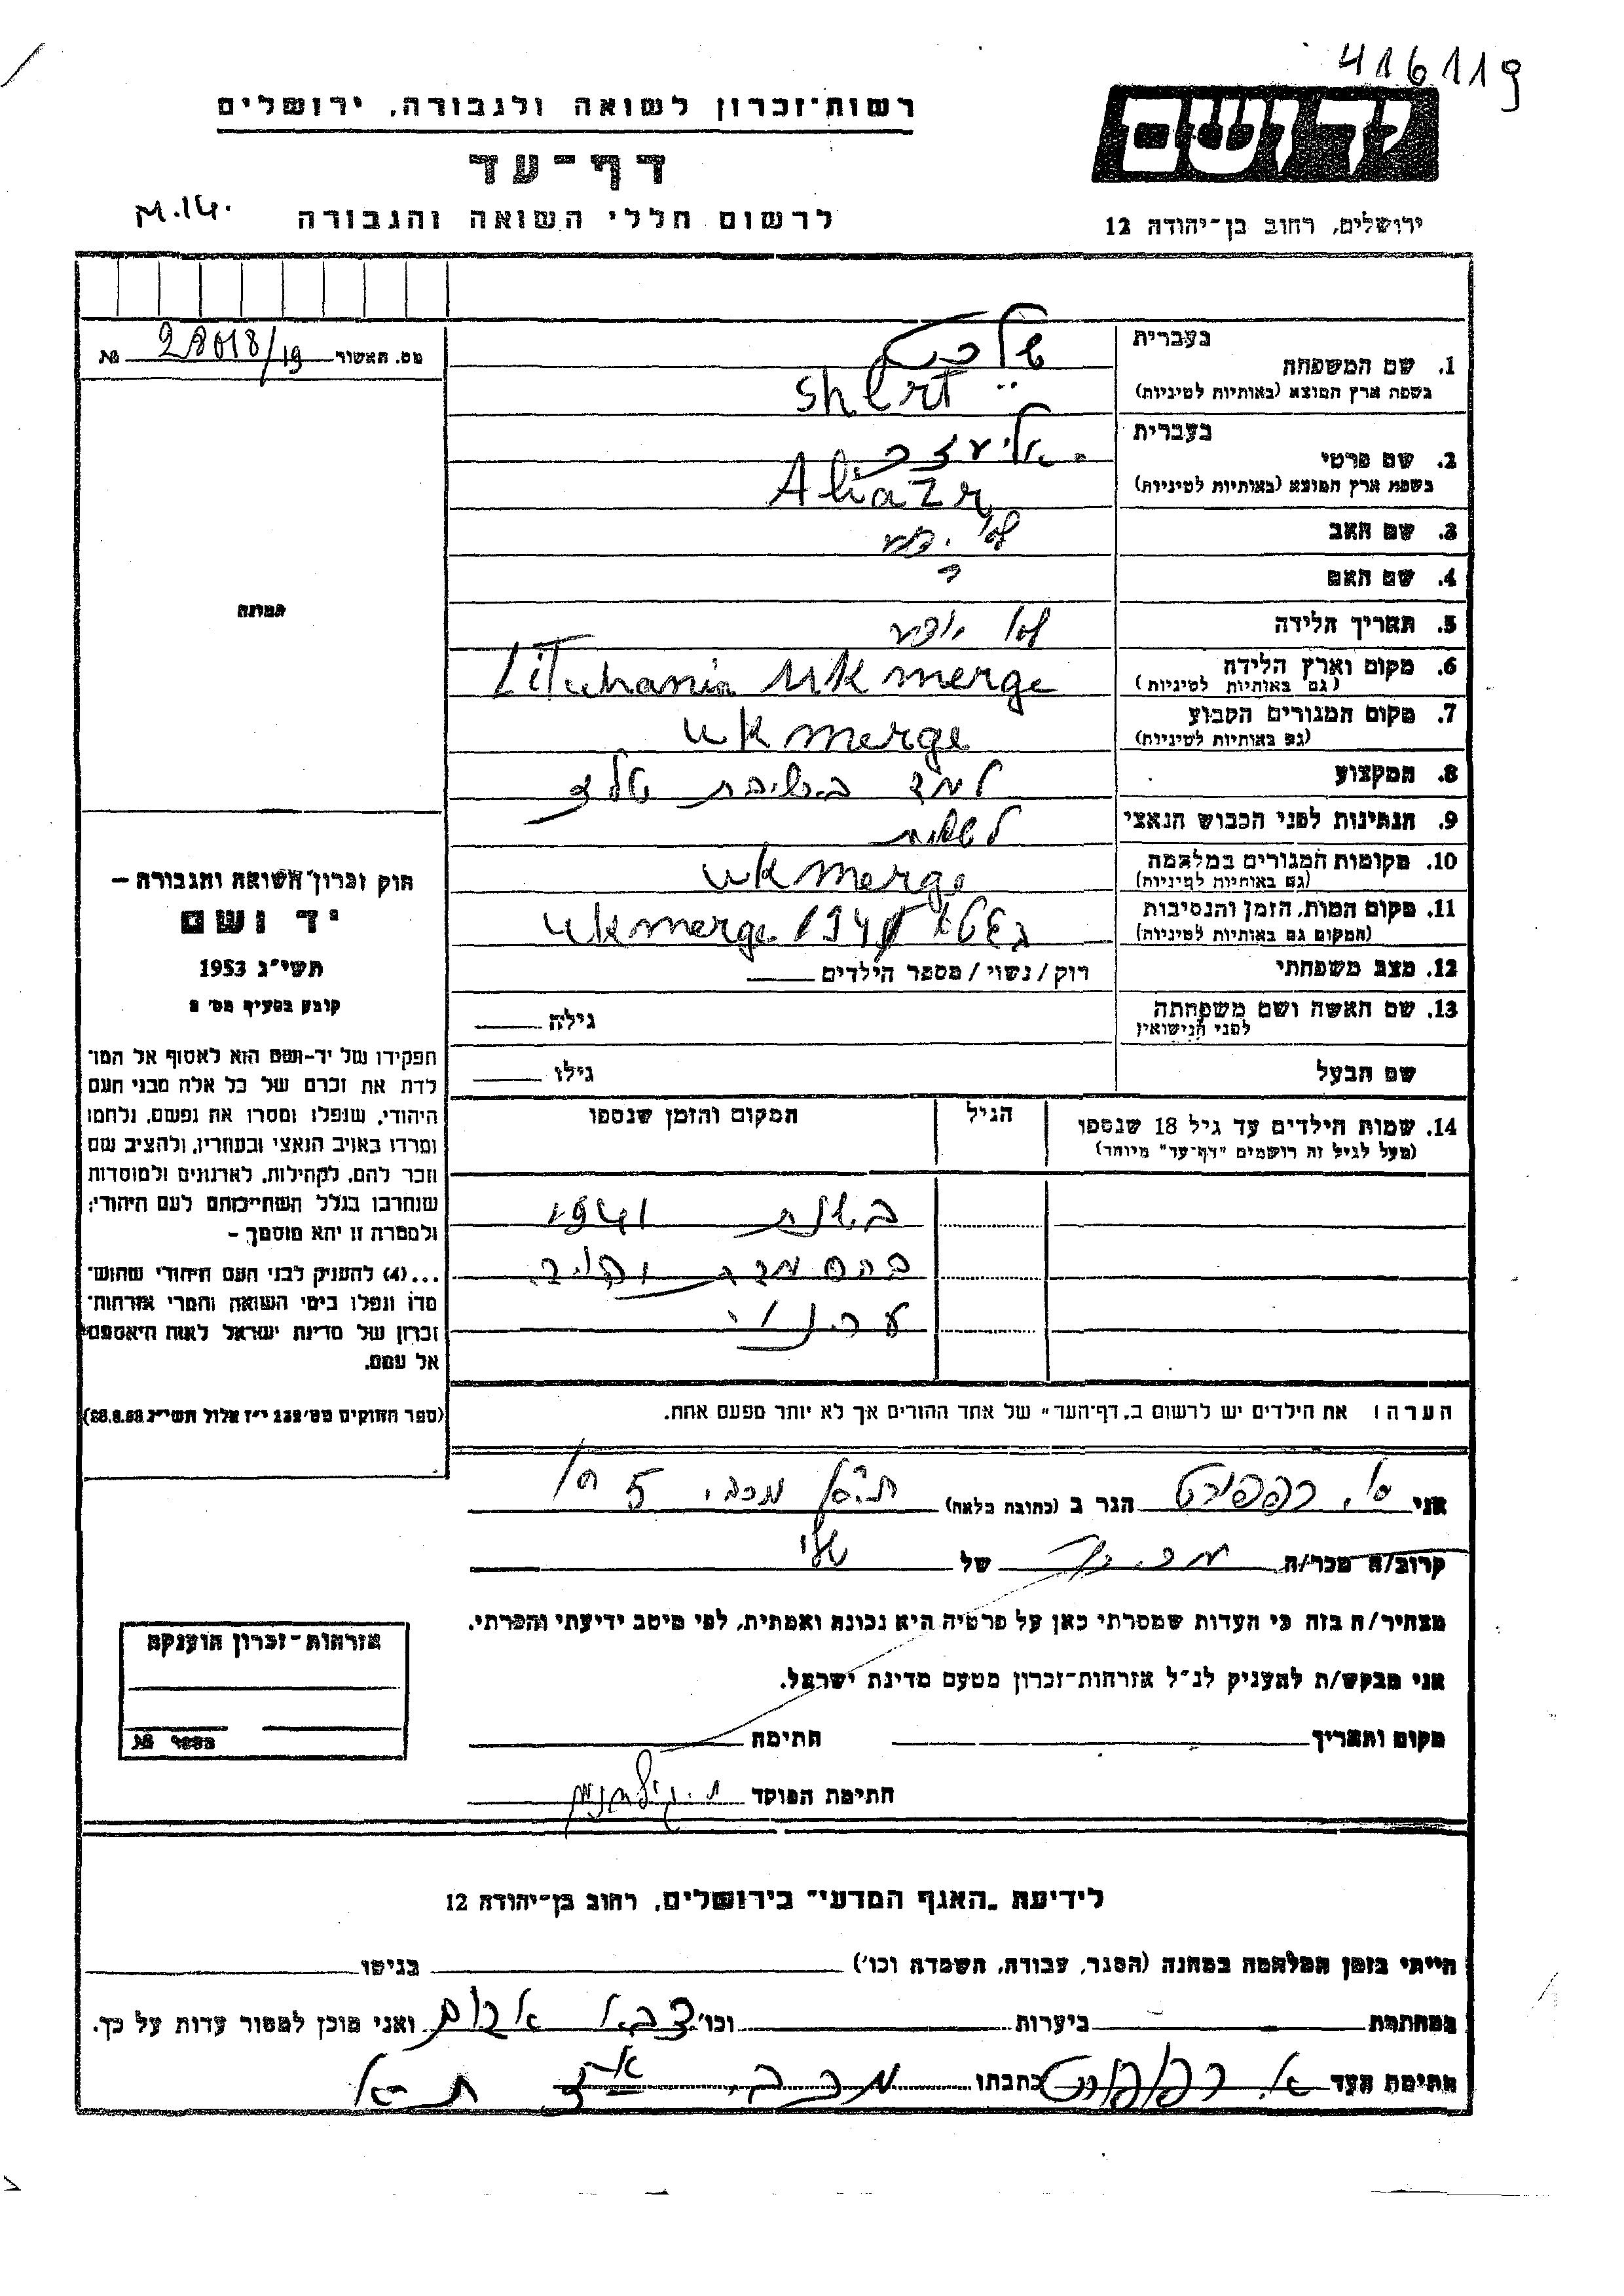 416119
רשות־זכרון לשואה ולגבורה, ירושלים
יד ושם
דף־עד
M.14.
לרשום חללי השואה והגבורה
ירושלים, רחוב בן־יהודה 12
בעברית
1. שם המשפחה
בשפת ארץ המוצא (באותיות לטיניות)
Shlrt
מס. האשור 28018/19 №
בעברית
2. שם פרטי אליעזר
בשפת ארץ המוצא (באותיות לטיניות)
Aliazr
3. שם האב לא ידוע
4. שם האם ?
5. תאריך הלידה לא ידוע
6. מקום וארץ הלידה Lituhania Ukmerge
(גם באותיות לטיניות)
7. מקום המגורים הקבוע ukmerge
(גם באותיות לטיניות)
8. המקצוע למד בישיבת טלז
9. הנתינות לפני הכבוש הנאצי
10. מקומות המגורים במלחמה ukmerge
(גם באותיות לטיניות)
11. מקום המות, הזמן והנסיבות 1941 ukmerge
(המקום גם באותיות לטיניות)
12. מצב משפחתי רוק/נשוי/מספר הילדים
13. שם האשה ושם משפחתה גילה
לפני הנישואין
שם הבעל גילו
14. שמות הילדים עד גיל 18 שנספו הגיל המקום והזמן שנספו
(מעל לגיל זה רושמים "דף־עד" מיוחד)
בשנת 1941
הערה: את הילדים יש לרשום ב"דף־העד" של אחד ההורים אך לא יותר מפעם אחת.
תמונה
חוק זכרון השואה והגבורה —
יד ושם
תשי"ג 1953
קובע בסעיף מס' 2
תפקידו של יד־ושם הוא לאסוף אל המו־
לדת את זכרם של כל אלה מבני העם
היהודי, שנפלו ומסרו את נפשם, נלחמו
ומרדו באויב הנאצי ובעוזריו, ולהציב שם
וזכר להם, לקהילות, לארגונים ולמוסדות
שנחרבו בגלל השתייכותם לעם היהודי;
ולמטרה זו יהא מוסמך —
...(4) להעניק לבני העם היהודי שהוש־
מדו ונפלו בימי השואה והמרי אזרחות־
זכרון של מדינת ישראל לאות היאספם
אל עמם.
(ספר החוקים מס' 132 י"ז אלול תשי"ג 28.8.53)
אני א. רפפורט הגר ב (כתובת מלאה) ת"א מכבי 5
קרוב/ה מכר/ה של שלי
מצהיר/ה בזה כי העדות שמסרתי כאן על פרטיה היא נכונה ואמתית, לפי מיטב ידיעתי והכרתי.
אני מבקש/ת להעניק לנ"ל אזרחות־זכרון מטעם מדינת ישראל.
מקום ותאריך חתימה
חתימת הפוקד
אזרחות־זכרון הוענקה
מספר №
לידיעת "האגף המדעי" בירושלים, רחוב בן־יהודה 12
הייתי בזמן המלחמה במחנה (הסגר, עבודה, השמדה וכו') בגיטו
במחתרת ביערות וכו' צבא אדום ואני מוכן למסור עדות על כך.
חתימת העד א. רפפורט כתבתו מכבי 5 ת"א